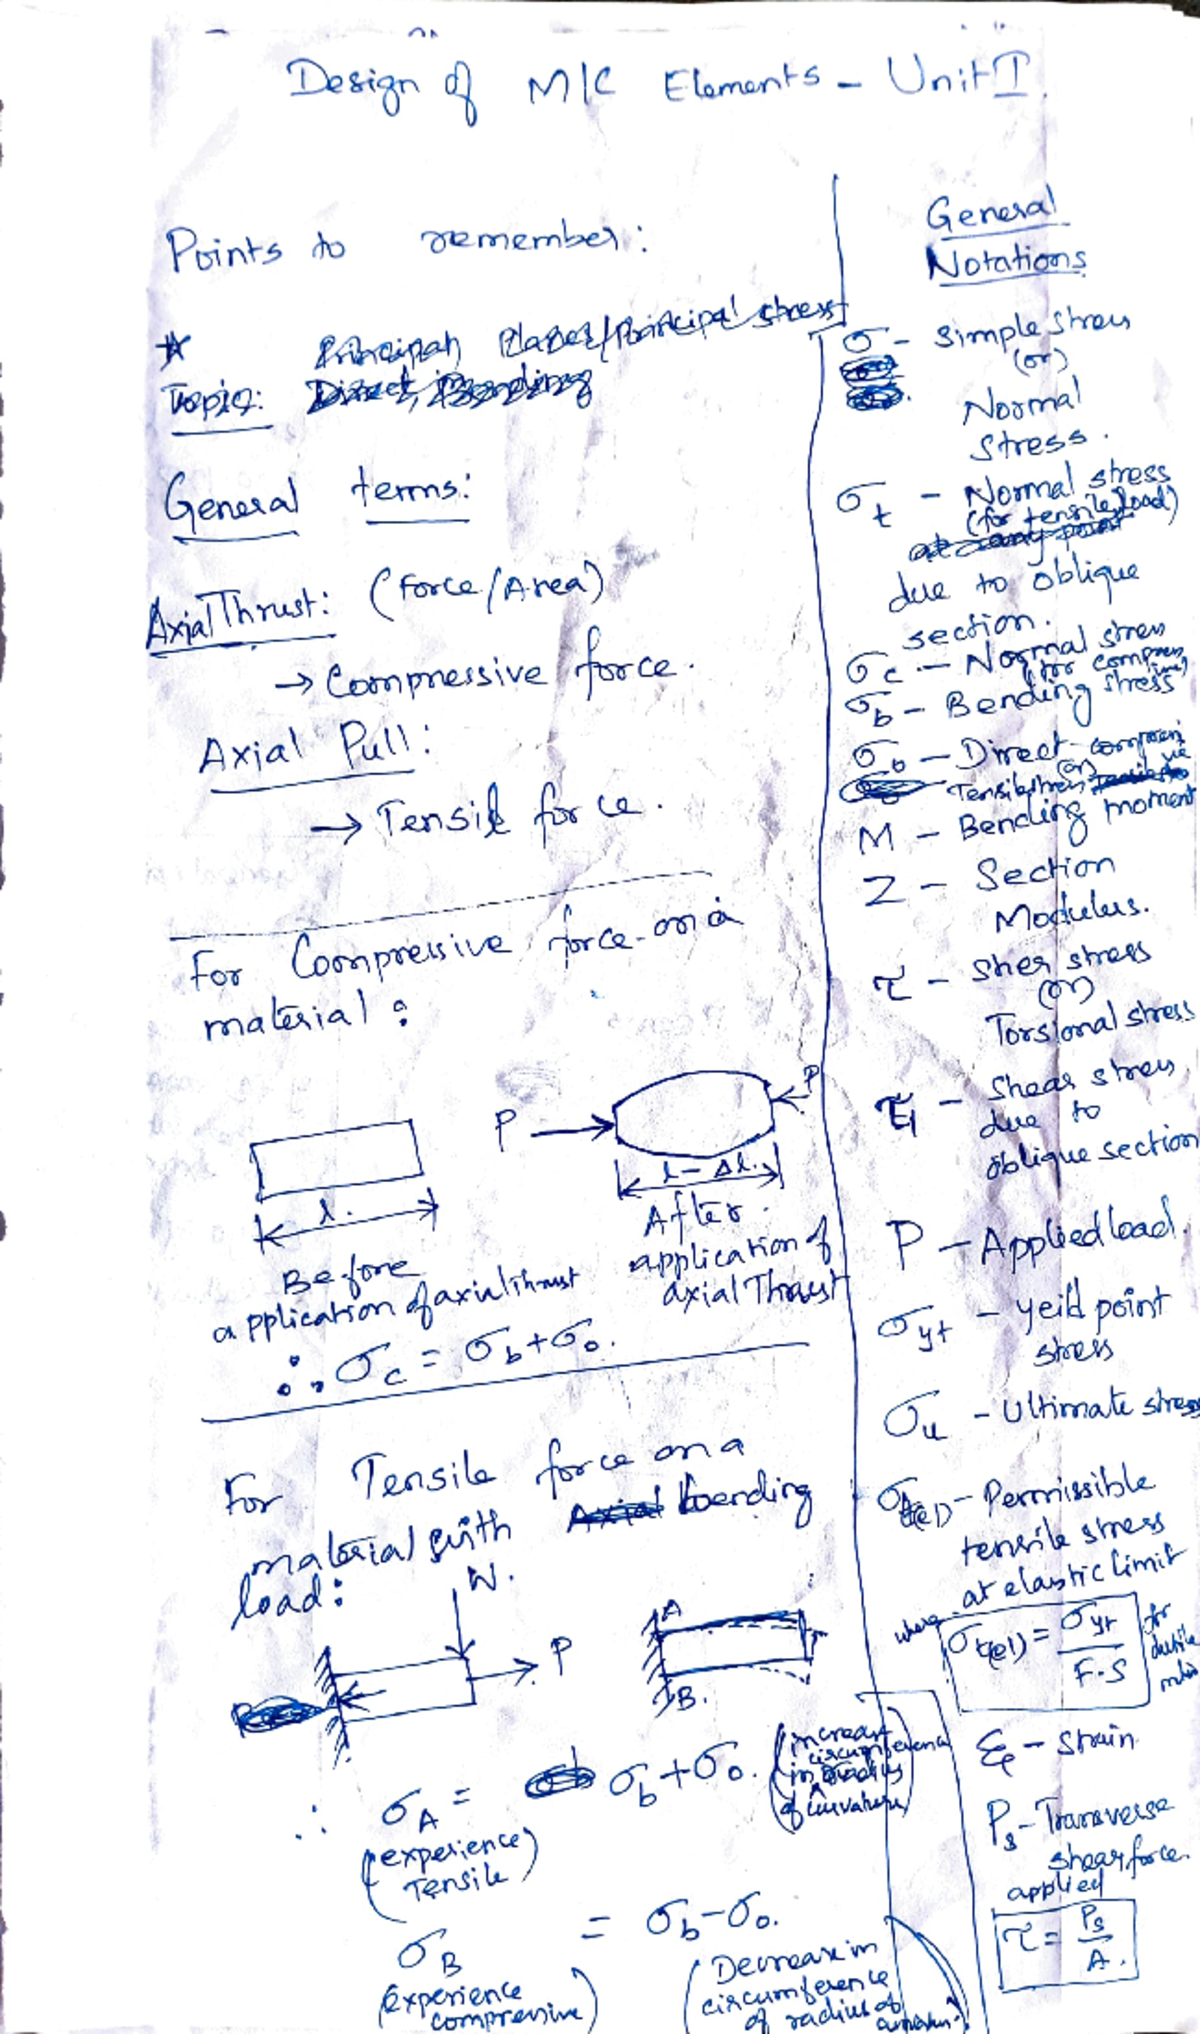 Design of M/C Elements - Unit I.
Points to remember:
Principal Planes/Principal stress
Topic: Direct, Bending
General terms:
Axial Thrust: (Force/Area)
→ Compressive force.
Axial Pull:
→ Tensile force.
For Compressive force on a
material:
P
P
l.
l - Δl.
Before
application of axial thrust
After
application of
axial Thrust
∴ σc = σb + σo.
For Tensile force on a
material with Axial bending
load:
W.
P
A
B.
∴ σA = σb + σo.
(experience
Tensile)
(increase
circumference
in radius
of curvature)
σB = σb - σo.
(experience
compressive)
(Decrease in
circumference
of radius of
General
Notations
σ - Simple stress
(or)
Normal
stress.
σt - Normal stress
(for tensile load)
at any point
due to oblique
section.
σc - Normal stress
(for compressive)
σb - Bending stress
σo - Direct compressive
(or)
Tensile stress
M - Bending moment
Z - Section
Modulus.
τ - Sher stress
(or)
Torsional stress
τ1 - Shear stress
due to
oblique section
P - Applied load.
σyt - yeild point
stress
σu - Ultimate stress
σt(el) - Permissible
tensile stress
at elastic limit
where
σt(el) = σyt / F.S
for
- Strain
Ps - Transverse
shear force.
applied
τ = Ps / A.